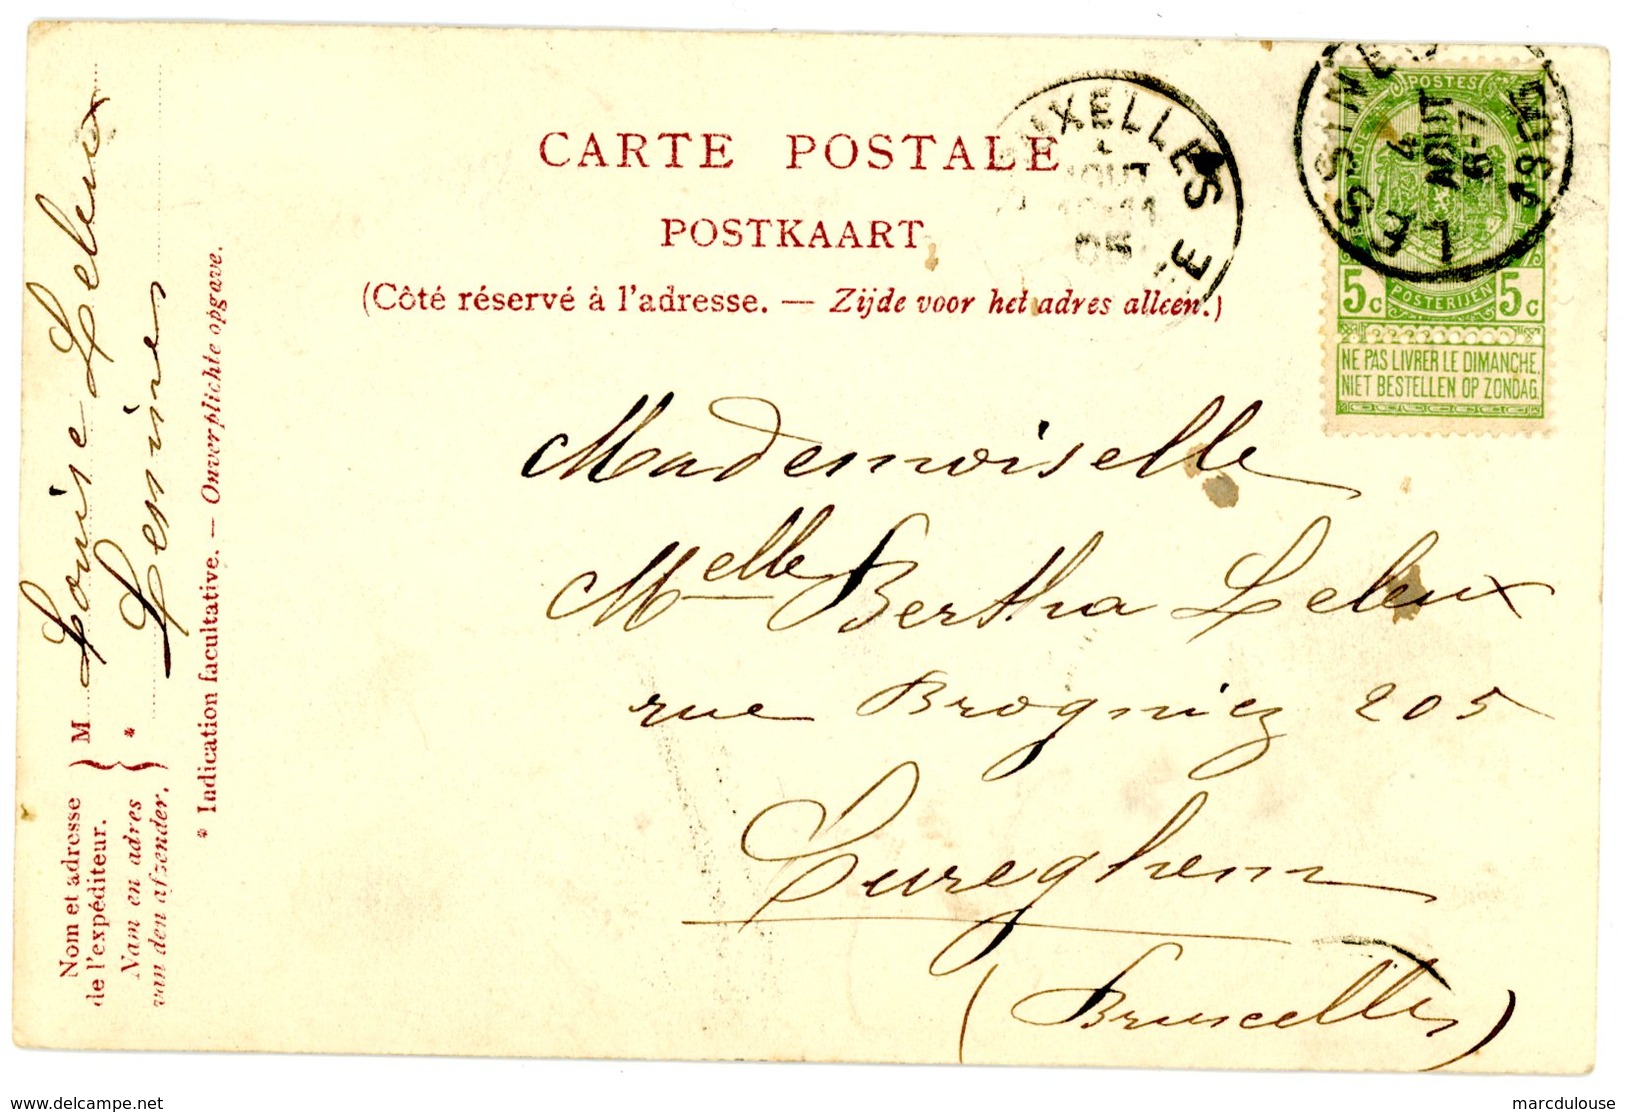 CARTE POSTALE
POSTKAART
(Côté réservé à l'adresse. — Zijde voor het adres alleen.)
Mademoiselle
Melle Bertha Leleux
rue Brogniez 205
Cureghem
(Bruxelles)
Nom et adresse
de l'expéditeur.
Nam en adres
van den afzender.
M Louise Leleux
* Lessines
* Indication facultative. — Onverplichte opgave.
BRUXELLES
AOUT
05
E
LESSINES
4
AOUT
6-7
POSTES
5c POSTERIJEN 5c
NE PAS LIVRER LE DIMANCHE
NIET BESTELLEN OP ZONDAG
www.delcampe.net
marcdulouse